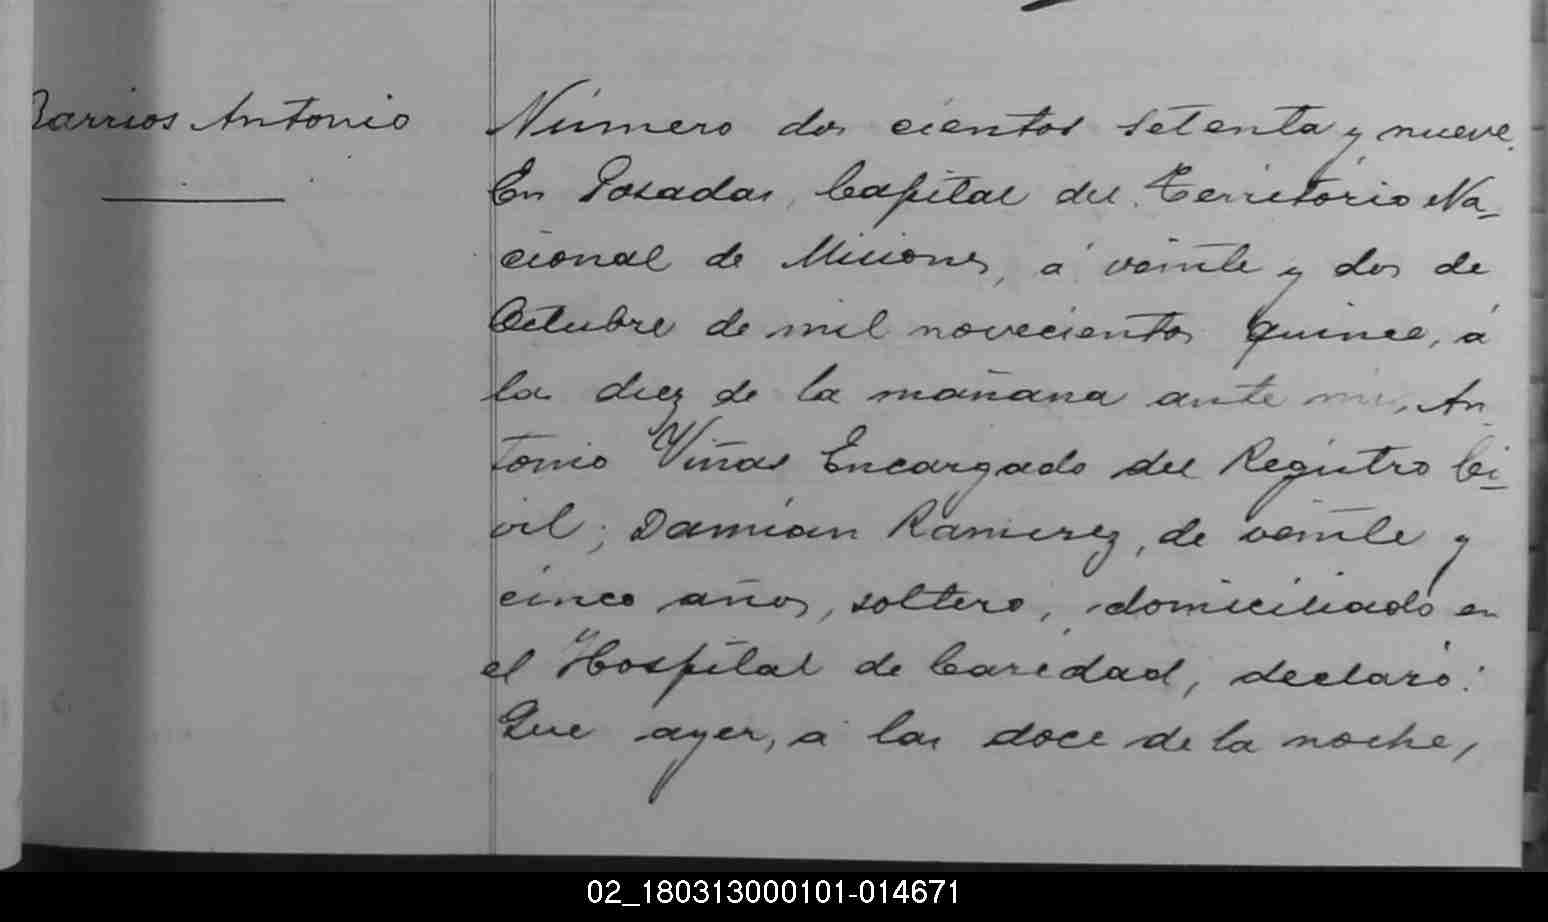 Barrios Antonio
Número dos cientos setenta y nueve.
En Posadas, Capital del Territorio Na_
cional de Misiones, á veinte y dos de
Octubre de mil novecientos quince, á
las diez de la mañana ante mi, An_
tonio Viñas Encargado del Registro Ci_
vil; Damián Ramirez, de veinte y
cinco años, soltero, domiciliado en
el Hospital de Caridad, declaró:
Que ayer, á las doce de la noche,
02_180313000101-014671